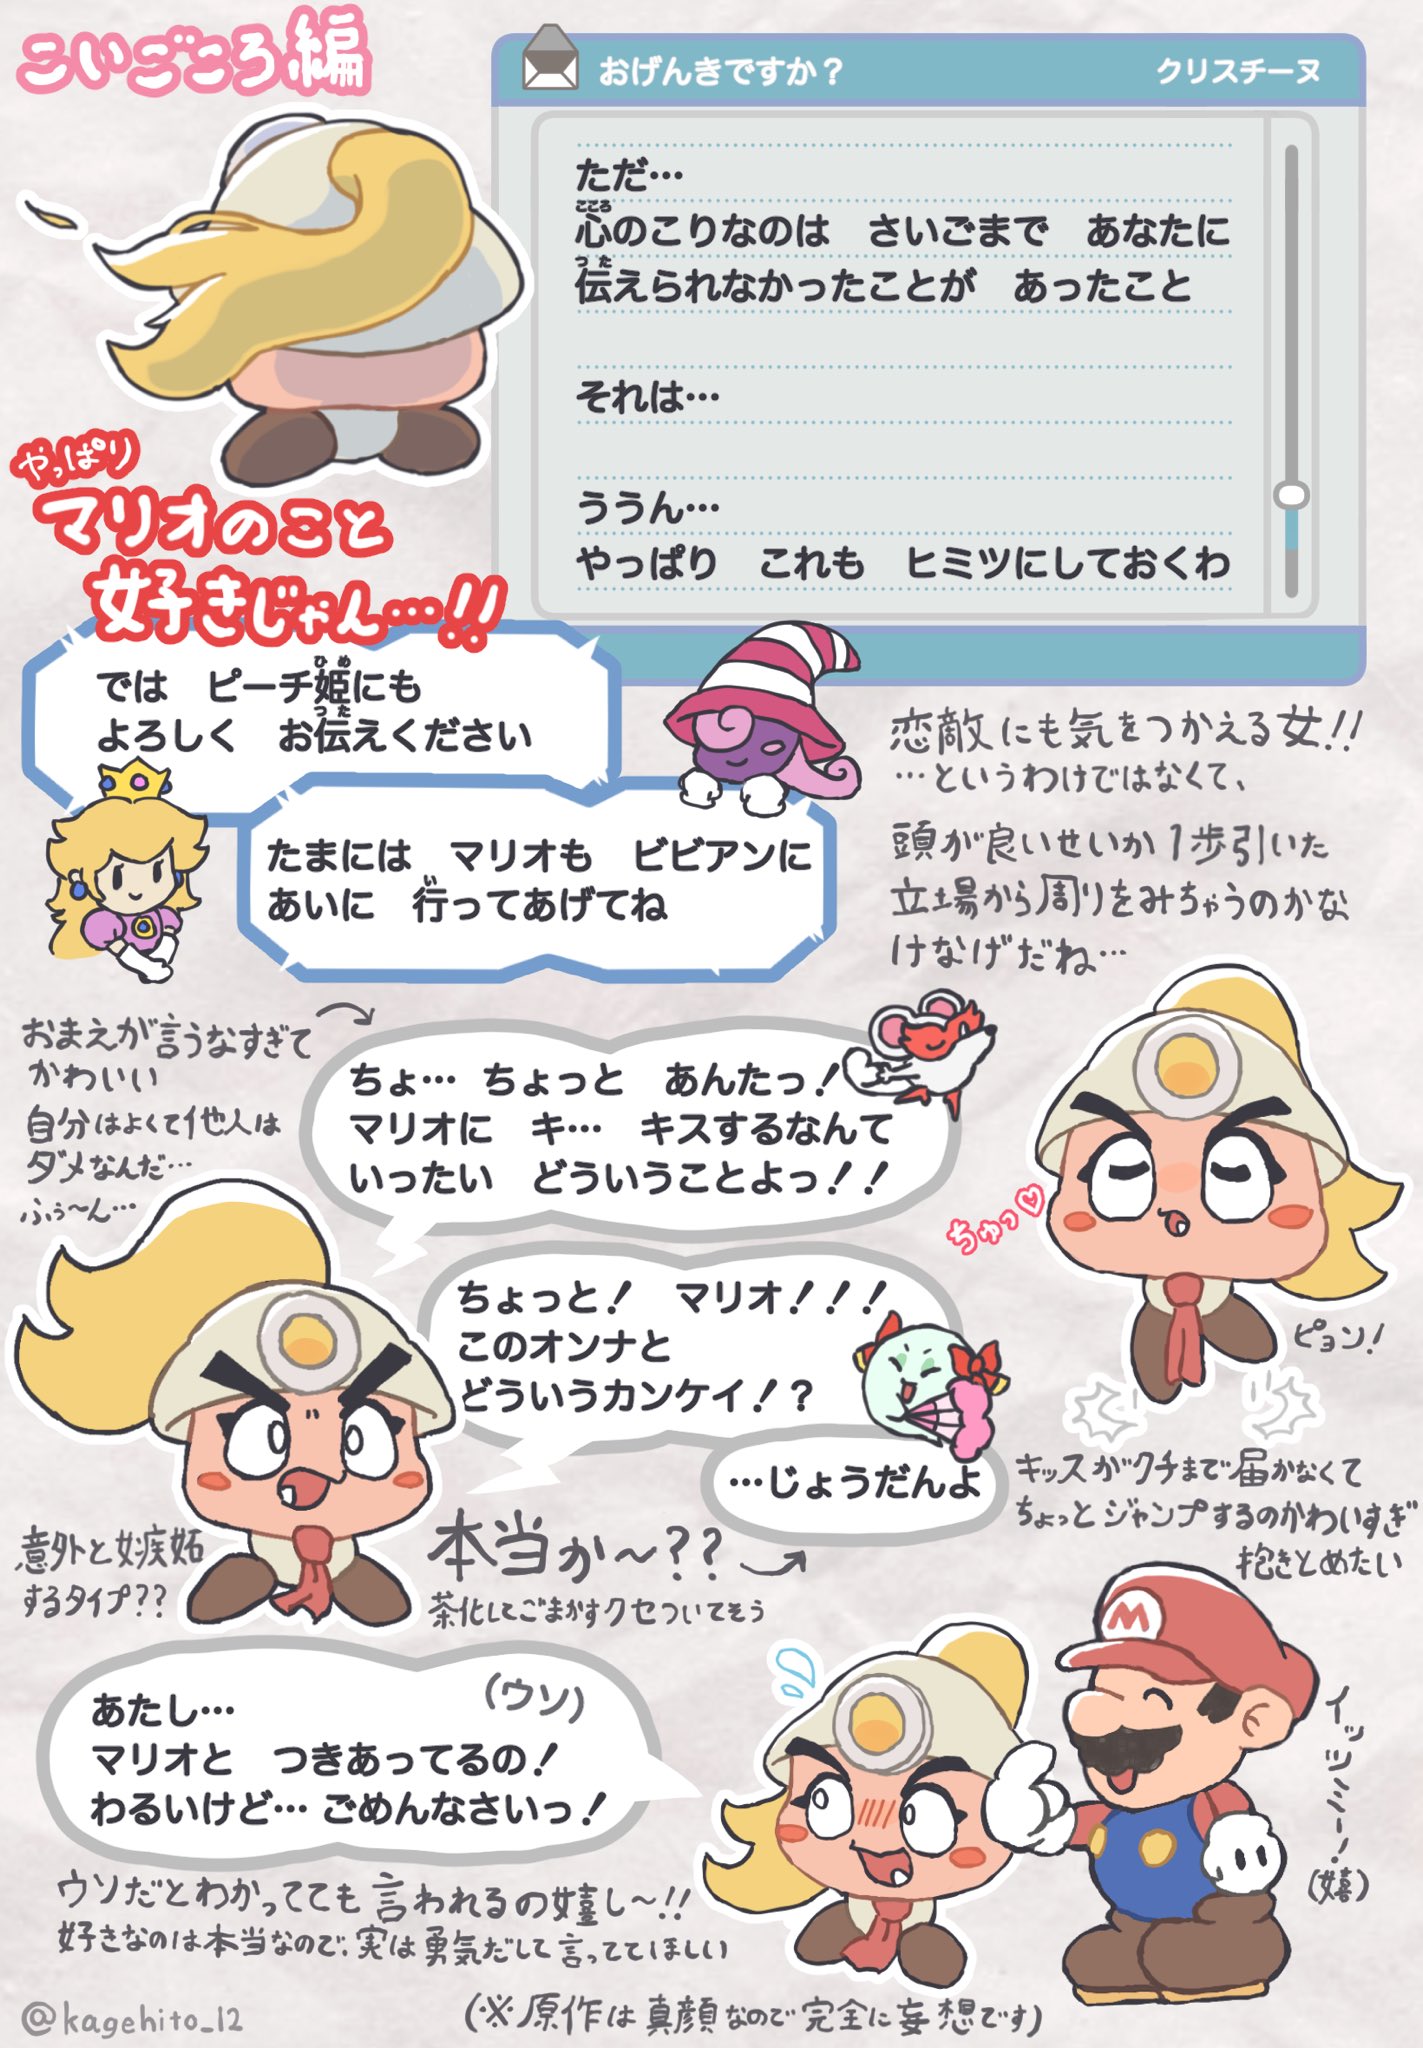 こいごころ編
おげんきですか？
クリスチーヌ
ただ…
心のこりなのは　さいごまで　あなたに
伝えられなかったことが　あったこと
それは…
ううん…
やっぱり　これも　ヒミツにしておくわ
やっぱり
マリオのこと
好きじゃん…!!
では　ピーチ姫にも
よろしく　お伝えください
たまには　マリオも　ビビアンに
あいに　行ってあげてね
恋敵にも気をつかえる女!!
…というわけではなくて、
頭が良いせいか1歩引いた
立場から周りをみちゃうのかな
けなげだね…
おまえが言うなすぎて
かわいい
自分はよくて他人は
ダメなんだ…
ふぅ〜ん…
ちょ… ちょっと　あんたっ！
マリオに　キ…　キスするなんて
いったい　どういうことよっ！！
ちゅっ♡
ピョン！
ちょっと！　マリオ！！！
このオンナと
どういうカンケイ！？
…じょうだんよ
キッスがクチまで届かなくて
ちょっとジャンプするのかわいすぎ
抱きとめたい
意外と嫉妬
するタイプ??
本当か〜??
茶化してごまかすクセついてそう
(ウソ)
あたし…
マリオと　つきあってるの！
わるいけど… ごめんなさいっ！
イッツミー！
(嬉)
ウソだとわかってても言われるの嬉し〜!!
好きなのは本当なので、実は勇気だして言っててほしい
@kagehito_12
(※原作は真顔なので完全に妄想です)